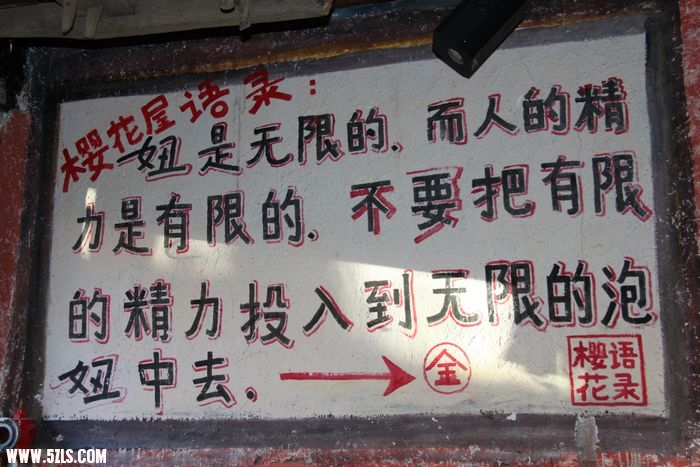 樱花屋语录:
妞是无限的.而人的精
力是有限的.不要把有限
的精力投入到无限的泡
妞中去.→金
樱花语录
WWW.5ZLS.COM